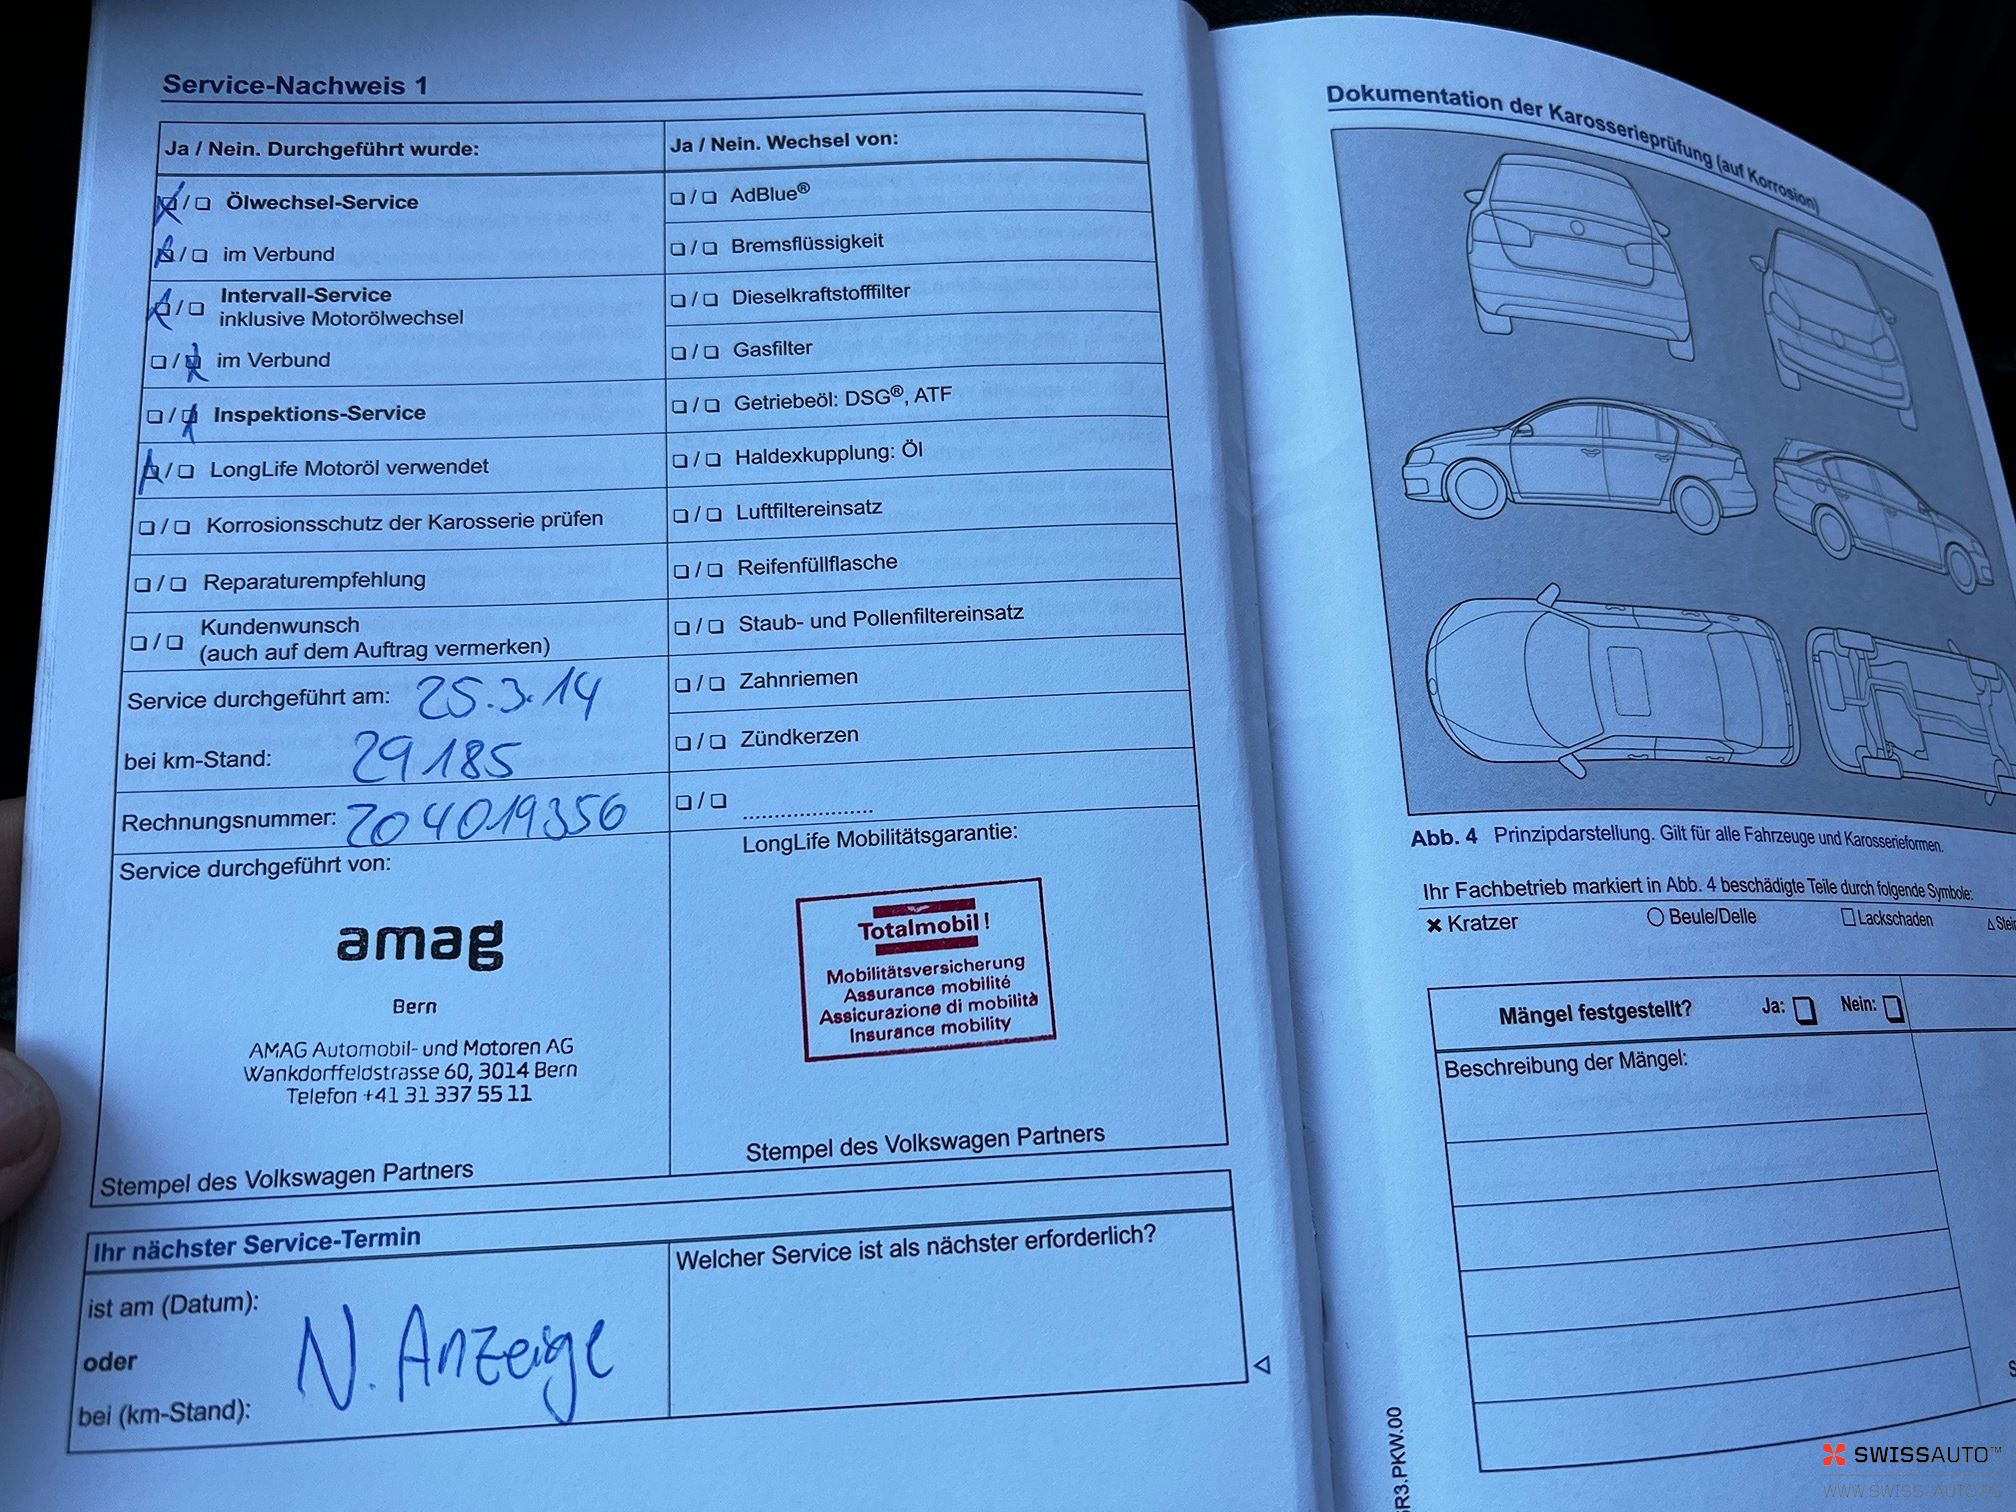 Service-Nachweis 1
Ja / Nein. Durchgeführt wurde:
Ölwechsel-Service
im Verbund
Intervall-Service
inklusive Motorölwechsel
im Verbund
Inspektions-Service
LongLife Motoröl verwendet
Korrosionsschutz der Karosserie prüfen
Reparaturempfehlung
Kundenwunsch
(auch auf dem Auftrag vermerken)
Service durchgeführt am: 25.3.14
bei km-Stand: 29185
Rechnungsnummer: 204019356
Service durchgeführt von:
amag
Bern
AMAG Automobil- und Motoren AG
Wankdorffeldstrasse 60, 3014 Bern
Telefon +41 31 337 55 11
Stempel des Volkswagen Partners
Ja / Nein. Wechsel von:
AdBlue®
Bremsflüssigkeit
Dieselkraftstofffilter
Gasfilter
Getriebeöl: DSG®, ATF
Haldexkupplung: Öl
Luftfiltereinsatz
Reifenfüllflasche
Staub- und Pollenfiltereinsatz
Zahnriemen
Zündkerzen
LongLife Mobilitätsgarantie:
Totalmobil!
Mobilitätsversicherung
Assurance mobilité
Assicurazione di mobilità
Insurance mobility
Stempel des Volkswagen Partners
Ihr nächster Service-Termin
ist am (Datum):
oder
bei (km-Stand):
N. Anzeige
Welcher Service ist als nächster erforderlich?
Dokumentation der Karosserieprüfung (auf Korrosion)
Abb. 4 Prinzipdarstellung. Gilt für alle Fahrzeuge und Karosserieformen.
Ihr Fachbetrieb markiert in Abb. 4 beschädigte Teile durch folgende Symbole:
Kratzer
Beule/Delle
Lackschaden
Mängel festgestellt? Ja: Nein:
Beschreibung der Mängel:
R3.PKW.00
SWISSAUTO™